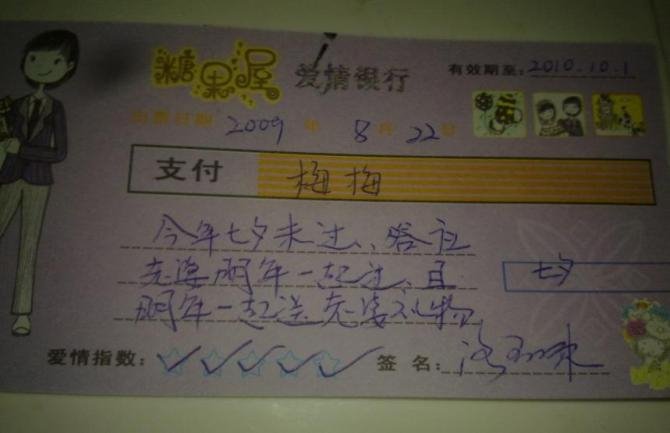 糖果屋 爱情银行 有效期至:2010.10.1
出票日期 2009年8月22日
支付 梅梅
今年七夕未过、答应
老婆明年一起过、且
七夕
明年一起送老婆礼物
爱情指数:
签名: